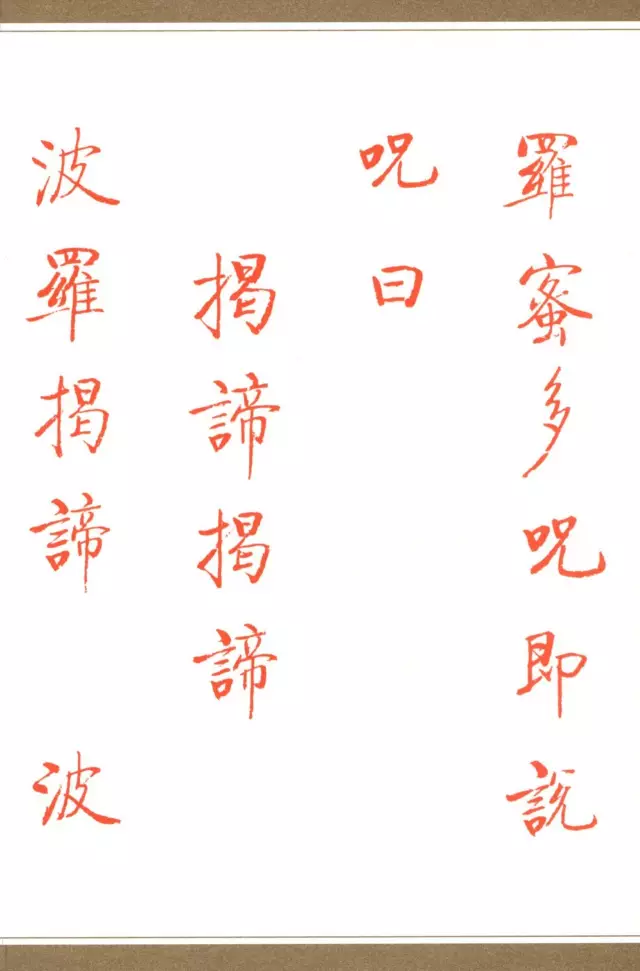 羅蜜多咒即說
咒曰
揭諦揭諦
波羅揭諦 波